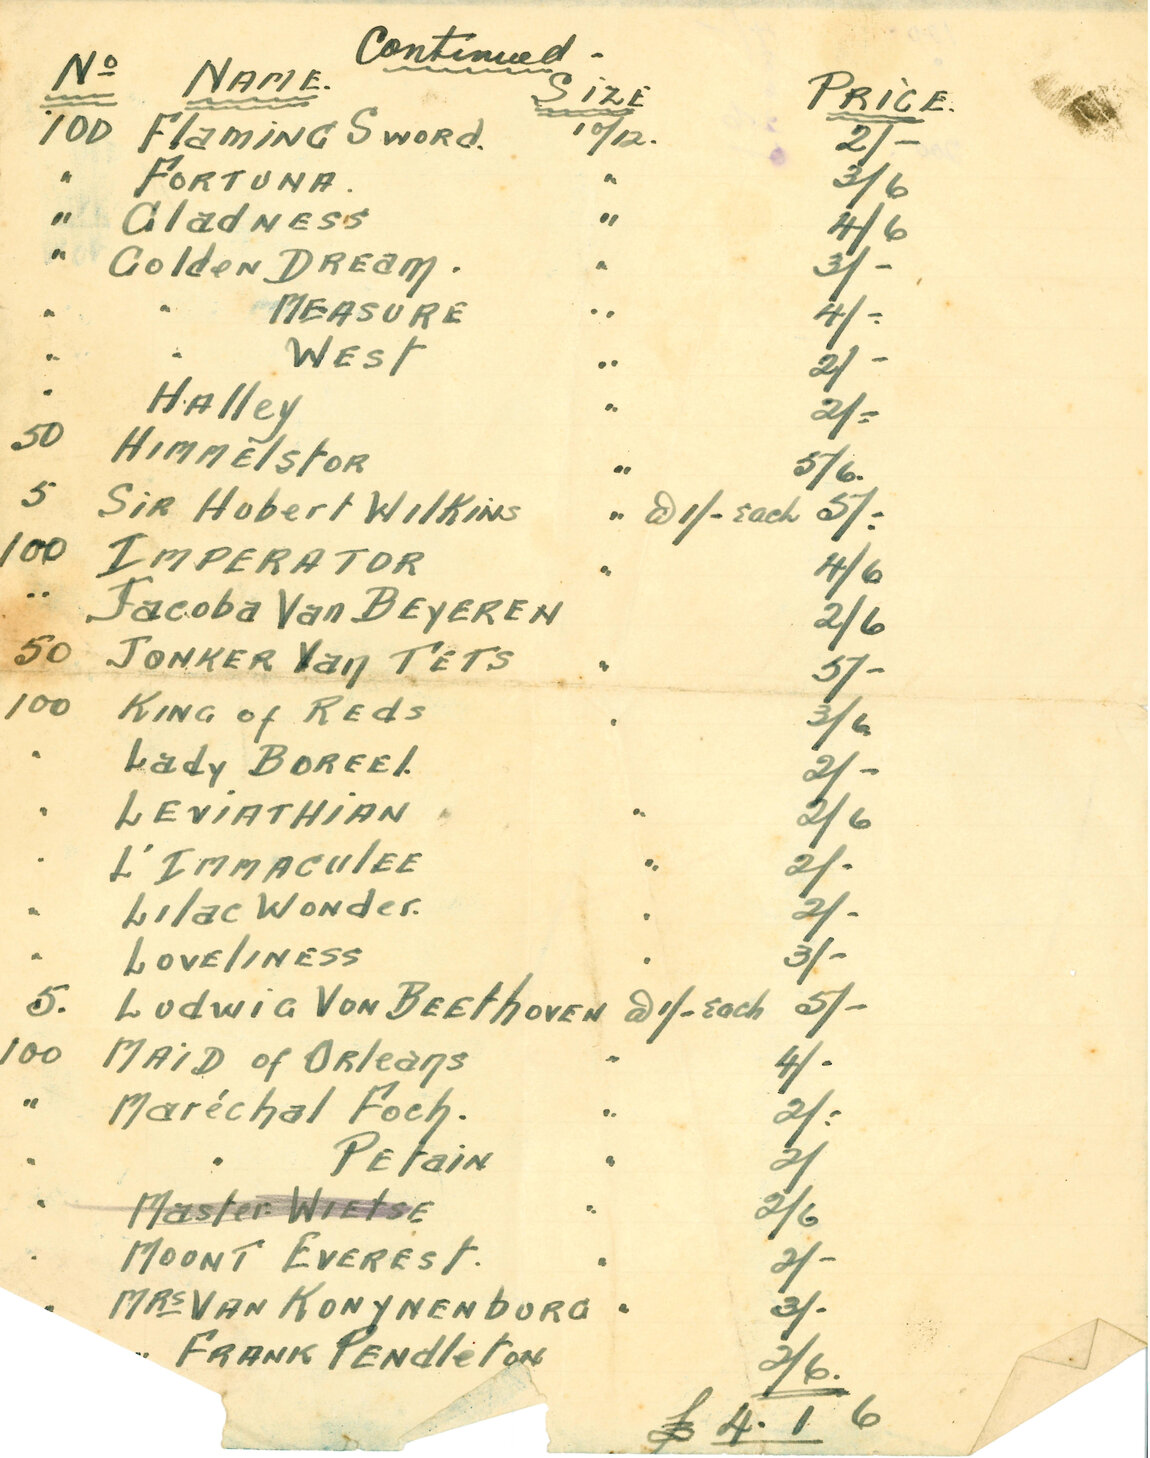 Continued -
No NAME. SIZE PRICE.
100 Flaming Sword. 10/12. 2/-
" FORTUNA. " 3/6
" Gladness " 4/6
" Golden Dream. " 3/-
" " MEASURE " 4/-
" " West " 2/-
" Halley " 2/-
50 Himmelstor " 5/6.
5 Sir Hubert Wilkins " @ 1/- Each 5/-
100 IMPERATOR " 4/6
" Jacoba Van BEYEREN 2/6
50 JONKER Van TETS " 5/-
100 KING of REDS " 3/6
" Lady BOREEL. 2/-
" LEVIATHIAN " 2/6
" L'IMMACULEE " 2/-
" Lilac Wonder. " 2/-
" LOVELINESS " 3/-
5. Ludwig Von Beethoven @ 1/- Each 5/-
100 MAID of Orleans " 4/-
" Maréchal Foch. " 2/-
" " Petain " 2/
" Master Wietse " 2/6
" MOUNT EVEREST. " 2/-
" MRS VAN KONYNENBURG " 3/-
" FRANK PENDLETON 2/6.
£ 4. 1 6